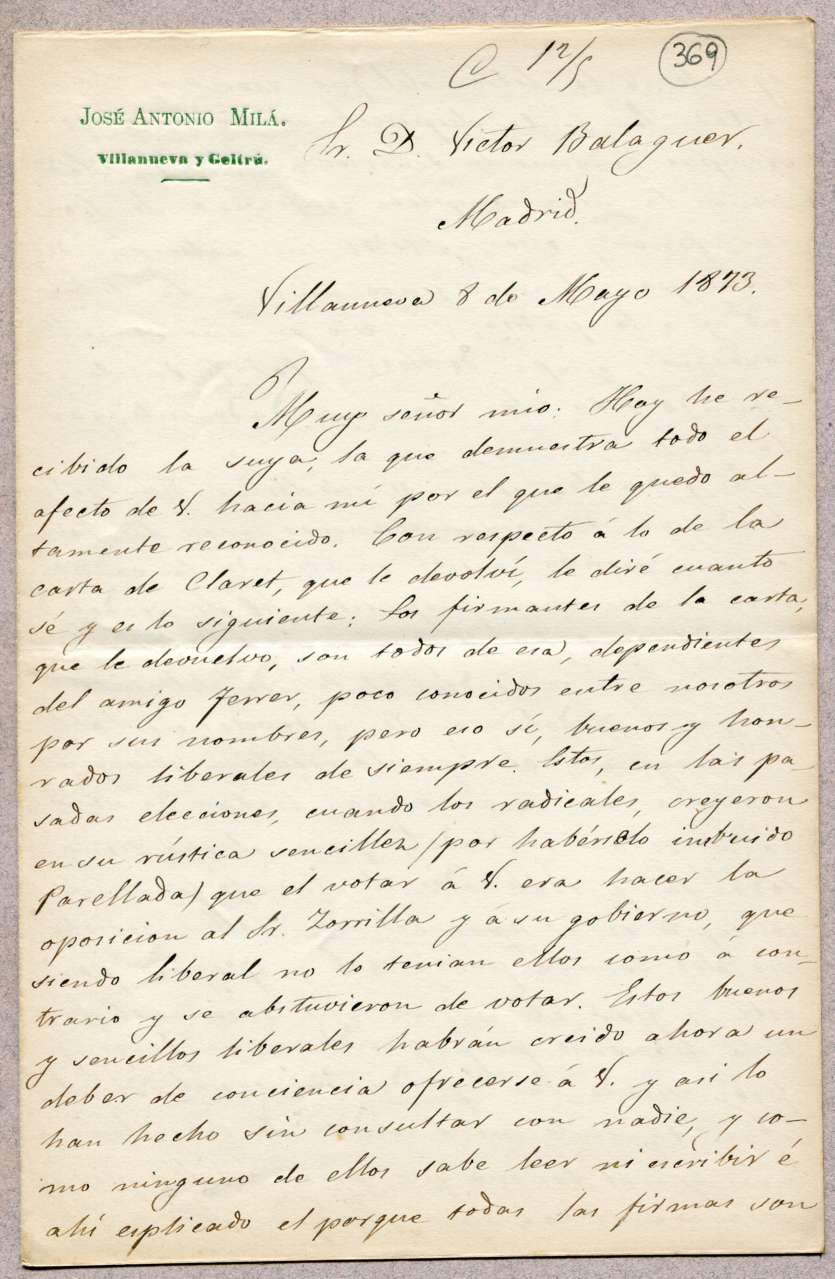 C 12/5
369
JOSÉ ANTONIO MILÁ.
Villanueva y Geltrú.
Sr. D. Victor Balaguer.
Madrid.
Villanueva 8 de Mayo 1873.
Muy señor mio: Hoy he re-
cibido la suya, la que demuestra todo el
afecto de V. hacia mí por el que le quedo al-
tamente reconocido. Con respecto á lo de la
carta de Claret, que le devolví, le diré cuanto
sé y es lo siguiente: Los firmantes de la carta,
que le devuelvo, son todos de esa, dependientes
del amigo Ferrer, poco conocidos entre nosotros
por sus nombres, pero eso sí, buenos y hon-
rados liberales de siempre. Estos, en las pa-
sadas elecciones, cuando los radicales, creyeron
en su rústica sencillez (por habérselo imbuido
Parellada) que el votar á V. era hacer la
oposicion al Sr. Zorrilla y á su gobierno, que
siendo liberal no lo tenian ellos como á con-
trario y se abstuvieron de votar. Estos buenos
y sencillos liberales habrán creido ahora un
deber de conciencia ofrecerse á V. y asi lo
han hecho sin consultar con nadie, y co-
mo ninguno de ellos sabe leer ni escribir é
ahí esplicado el porque todas las firmas son